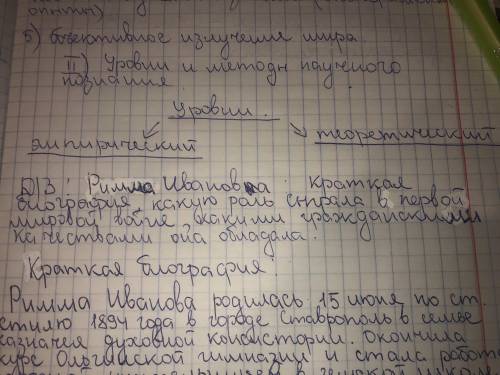 опыты)
5) объективное излучения мира.
II) Уровни и методы научного
познания
Уровни.
эмпирический теоретический
Д/З: Римма Иванова: краткая
биография, какую роль сыграла в первой
мировой войне, какими гражданскими
качествами она обладала.
Краткая биография:
Римма Иванова родилась 15 июня по ст.
стилю 1894 года в городе Ставрополь в семье
казначея духовной консистории. Окончила
курс Ольгинской гимназии и стала работ
в земской школе